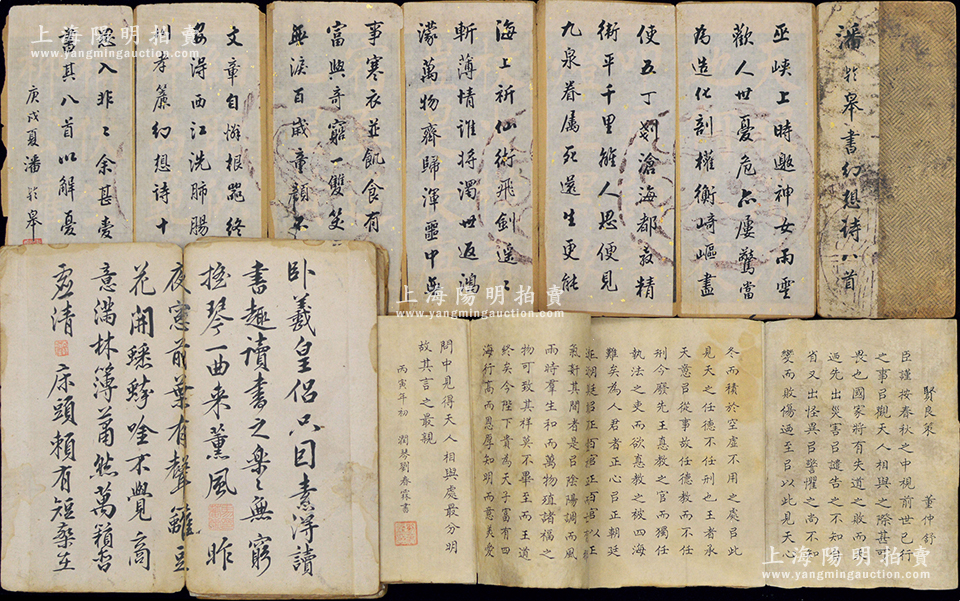 潘齡皋書幻想詩八首
巫峽上時邀神女雨雲
歡人世憂危亦屢驚當
為造化剖權衡崎嶇盡
使五丁剗滄海都教精
衛平千里離人思便見
九泉眷屬死還生更能
海上祈仙術飛劍遥〻
斬薄情誰將濁世返鴻
濛萬物齊歸渾噩中無
事寒衣並飢食有
富與奇窮一雙笑
無淚百歲童顏不
文章自憐根器終
安得西江洗肺腸
相孝簾幻想詩十
忽入非〻余甚愛
舊其八首以解憂
庚戌夏潘齡皋
臥羲皇侶只因素深讀
書趣讀書之樂〻無窮
撫琴一曲来薰風昨
夜窗前葉有聲籬豆
花開蟋蟀唫不覺商
意滿林薄蕭然萬籟含
虛清床頭賴有短檠在
賢良策
董仲舒
臣謹按春秋之中視前世已行
之事㠯觀天人相與之際甚可
畏也國家將有失道之敗而天
迺先出災害㠯譴告之不知自
省又出怪異㠯警懼之尚不知
變而敗傷迺至㠯以此見天心
冬而積於空虛不用之處㠯此
見天之任德不任刑也王者承
天意㠯從事故任德教而不任
刑今廢先王惪教之官而獨任
執法之吏而欲惪教之被四海
難矣為人君者正心㠯正朝廷
正朝廷㠯正百官正百官㠯正
氣奸其間者是㠯陰陽調而風
雨時羣生和而萬物殖諸福之
物可致其祥莫不畢至而王道
終矣今陛下貴為天子富有四
海行高而恩厚知明而意美愛
問中見得天人相與處最分明
故其言之最親
丙寅年初
潤琴劉春霖書
上海陽明拍賣
www.yangmingauction.com
上海陽明拍賣
www.yangmingauction.com
上海陽明拍賣
www.yangmingauction.com
上海陽明拍賣
www.yangmingauction.com
上海陽明拍賣
www.yangmingauction.com